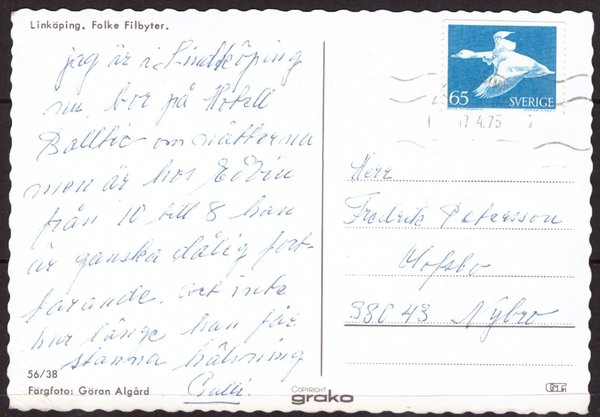 Linköping. Folke Filbyter.
jag är i Lindköping
nu bor på Hotell
Balltic om nätterna
men är hos Edvin
från 10 till 8 han
är ganska dålig fort-
farande. vet inte
hur länge han får
stanna hälsning
56/38
Färgfoto: Göran Algård
COPYRIGHT
grako
65
SVERIGE
4.75
Herr
Fredrik Petersson
Hofsbo
380 43 Nybro